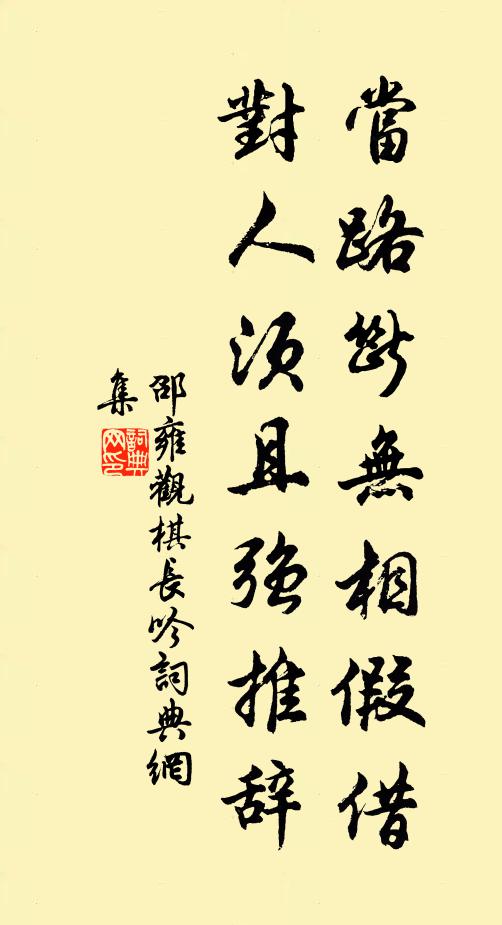 當路斷無相假借
對人須且強推辞
邵雍觀棋長吟詞典網
集
詞典
网印